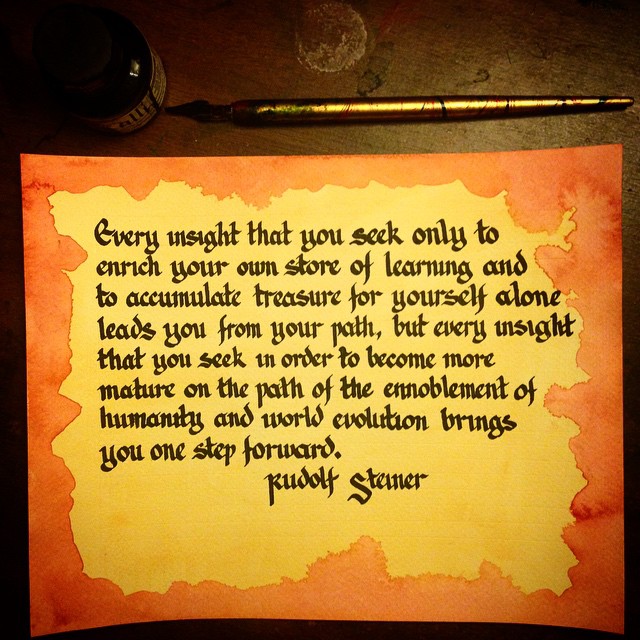 Every insight that you seek only to
enrich your own store of learning and
to accumulate treasure for yourself alone
leads you from your path, but every insight
that you seek in order to become more
mature on the path of the ennoblement of
humanity and world evolution brings
you one step forward.
Rudolf Steiner